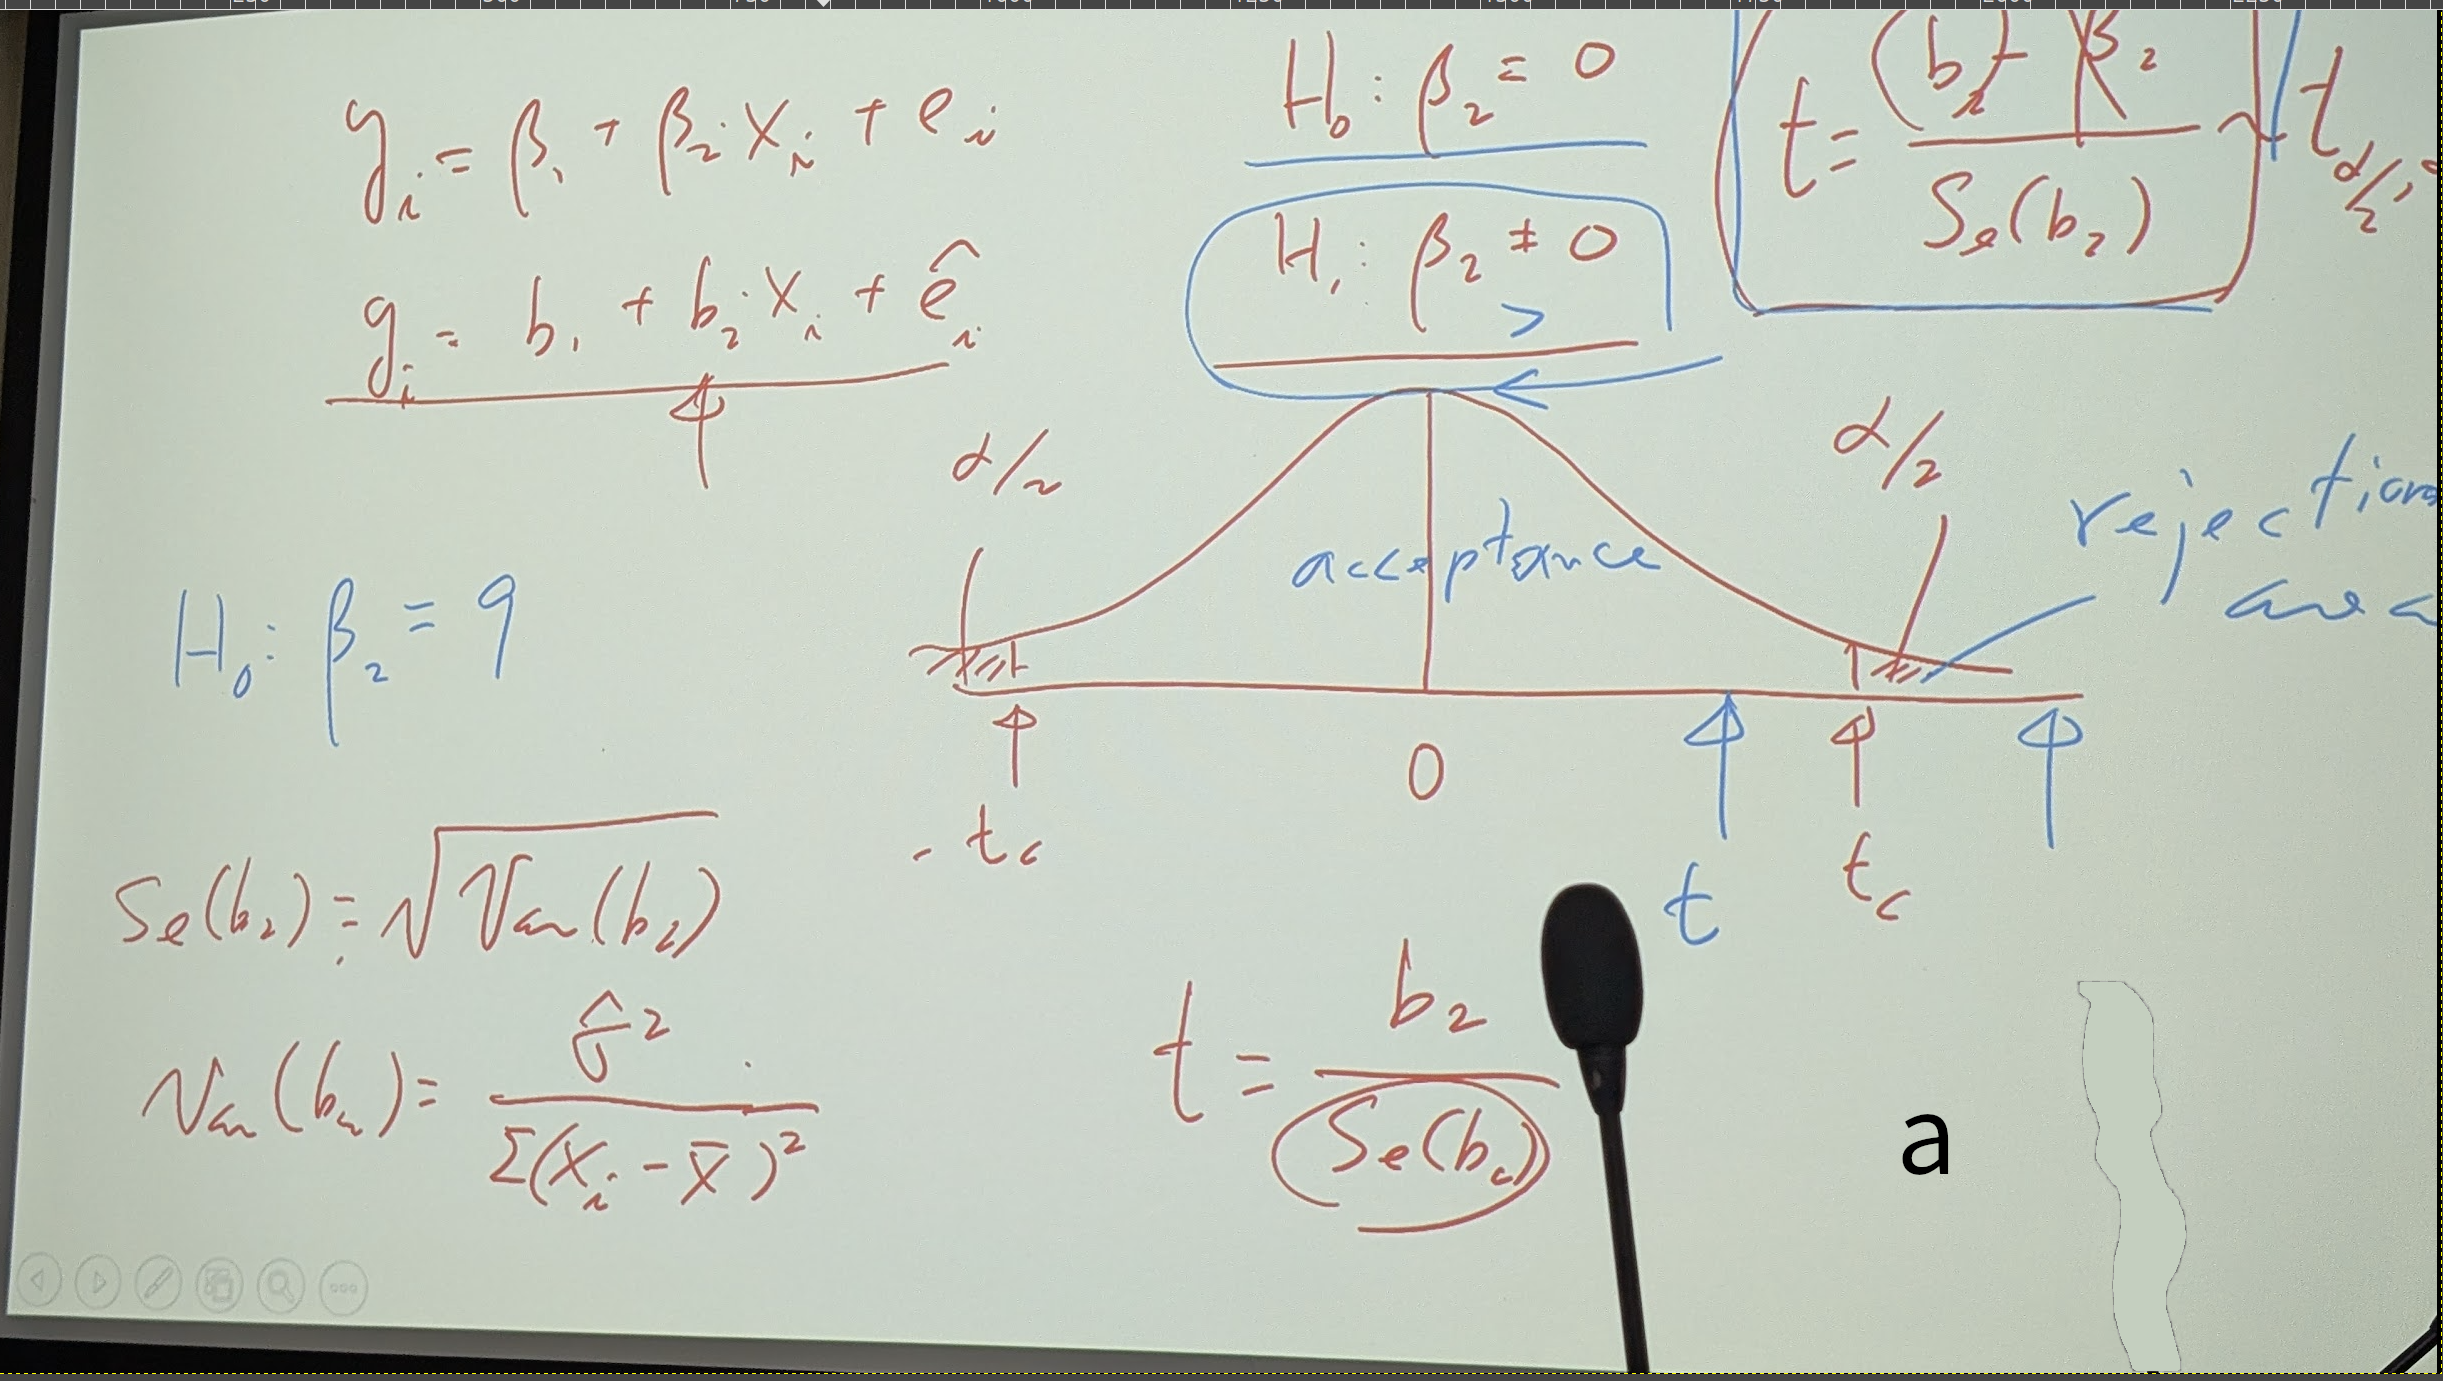 yᵢ = β₁ + β₂·xᵢ + eᵢ
yᵢ = b₁ + b₂·xᵢ + êᵢ
H₀: β₂ = 0
H₁: β₂ ≠ 0
>
t = (b₂) - β₂ / Se(b₂) ~ t α/2,
α/2
α/2
acceptance
rejection
area
-tc
0
t
tc
H₀: β₂ = 9
Se(b₂) = √Var(b₂)
Var(b₂) = σ̂² / Σ(xᵢ - x̄)²
t = b₂ / Se(b₂)
a